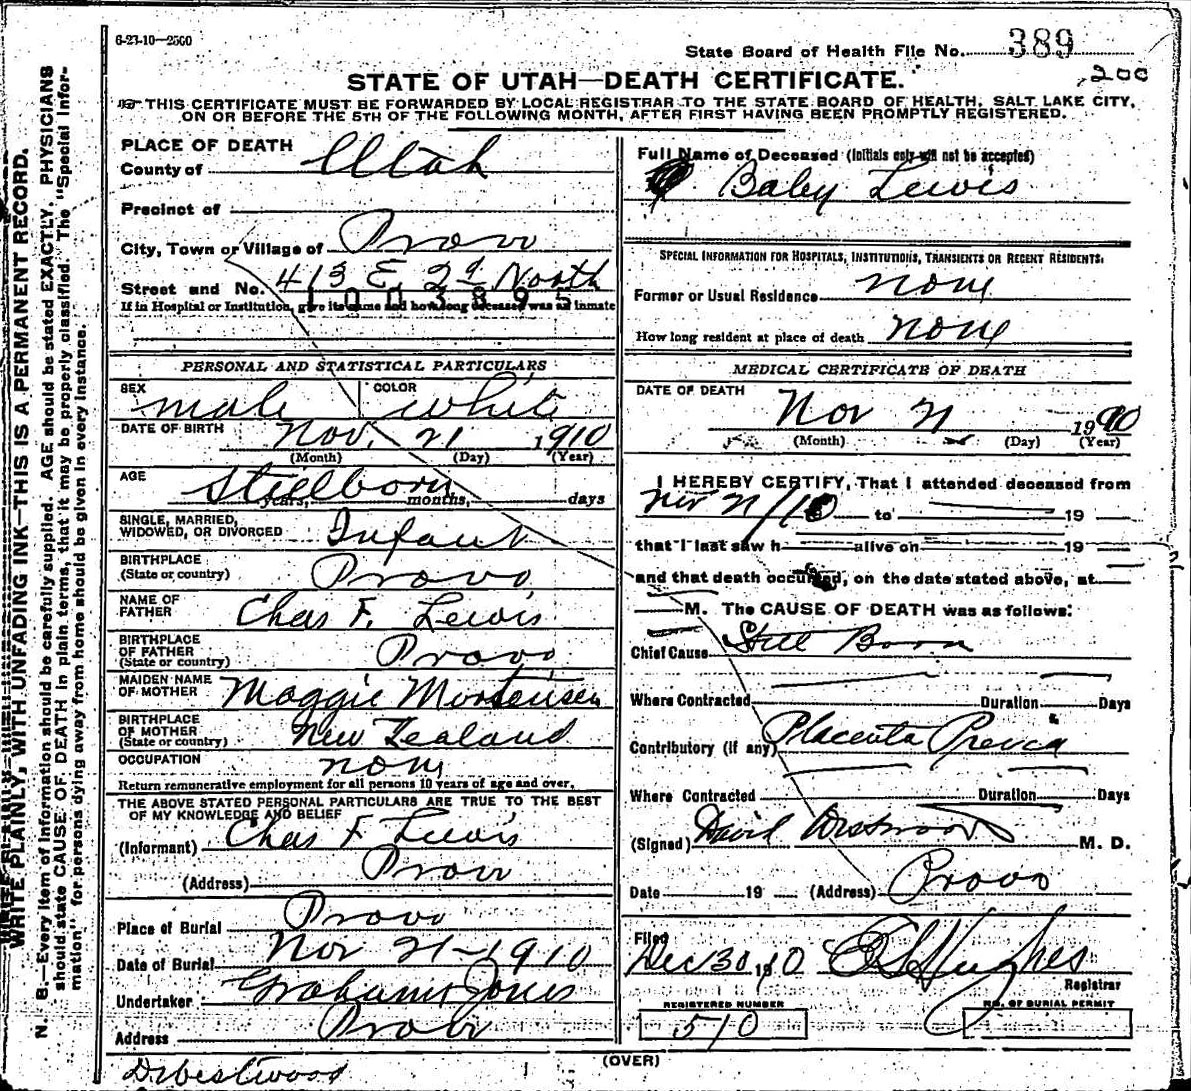 6-23-10—2500
State Board of Health File No. 389
200
STATE OF UTAH—DEATH CERTIFICATE.
THIS CERTIFICATE MUST BE FORWARDED BY LOCAL REGISTRAR TO THE STATE BOARD OF HEALTH, SALT LAKE CITY,
ON OR BEFORE THE 5TH OF THE FOLLOWING MONTH, AFTER FIRST HAVING BEEN PROMPTLY REGISTERED.
WRITE PLAINLY, WITH UNFADING INK—THIS IS A PERMANENT RECORD.
N. B.—Every item of information should be carefully supplied. AGE should be stated EXACTLY. PHYSICIANS
should state CAUSE OF DEATH in plain terms, that it may be properly classified. The "Special Infor-
mation" for persons dying away from home should be given in every instance.
PLACE OF DEATH
County of Utah
Precinct of
City, Town or Village of Provo
Street and No. 413 E 2d North
1003895
If in Hospital or Institution, give its name and how long deceased was an inmate
PERSONAL AND STATISTICAL PARTICULARS
SEX male COLOR white
DATE OF BIRTH Nov. 21 1910
(Month) (Day) (Year)
AGE Stillborn years, months, days
SINGLE, MARRIED,
WIDOWED, OR DIVORCED Infant
BIRTHPLACE
(State or country) Provo
NAME OF
FATHER Chas F. Lewis
BIRTHPLACE
OF FATHER
(State or country) Provo
MAIDEN NAME
OF MOTHER Maggie Mortensen
BIRTHPLACE
OF MOTHER
(State or country) New Zealand
OCCUPATION none
Return remunerative employment for all persons 10 years of age and over.
THE ABOVE STATED PERSONAL PARTICULARS ARE TRUE TO THE BEST
OF MY KNOWLEDGE AND BELIEF
(Informant) Chas F Lewis
(Address) Provo
Place of Burial Provo
Date of Burial Nov 21-1910
Undertaker Jones
Address Provo
Dr Westwood
Full Name of Deceased (Initials only will not be accepted)
Baby Lewis
SPECIAL INFORMATION FOR HOSPITALS, INSTITUTIONS, TRANSIENTS OR RECENT RESIDENTS.
Former or Usual Residence none
How long resident at place of death none
MEDICAL CERTIFICATE OF DEATH
DATE OF DEATH
Nov 21 1910
(Month) (Day) (Year)
I HEREBY CERTIFY, That I attended deceased from
Nov 21/10 to 19
that I last saw h alive on 19
and that death occurred, on the date stated above, at
M. The CAUSE OF DEATH was as follows:
Chief Cause Still Born
Where Contracted Duration Days
Contributory (if any) Placenta Previa
Where Contracted Duration Days
(Signed) David Westwood M. D.
Date 19 (Address) Provo
Filed
Dec 30 1910 Hughes
Registrar
REGISTERED NUMBER
510
NO. OF BURIAL PERMIT
(OVER)